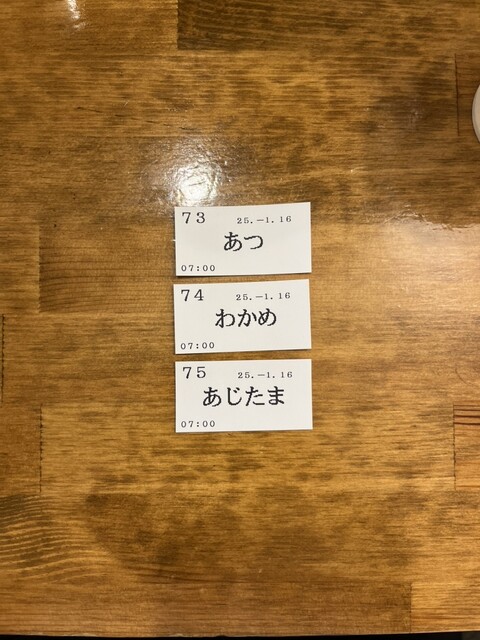 73 25.-1.16
あつ
07:00
74 25.-1.16
わかめ
07:00
75 25.-1.16
あじたま
07:00